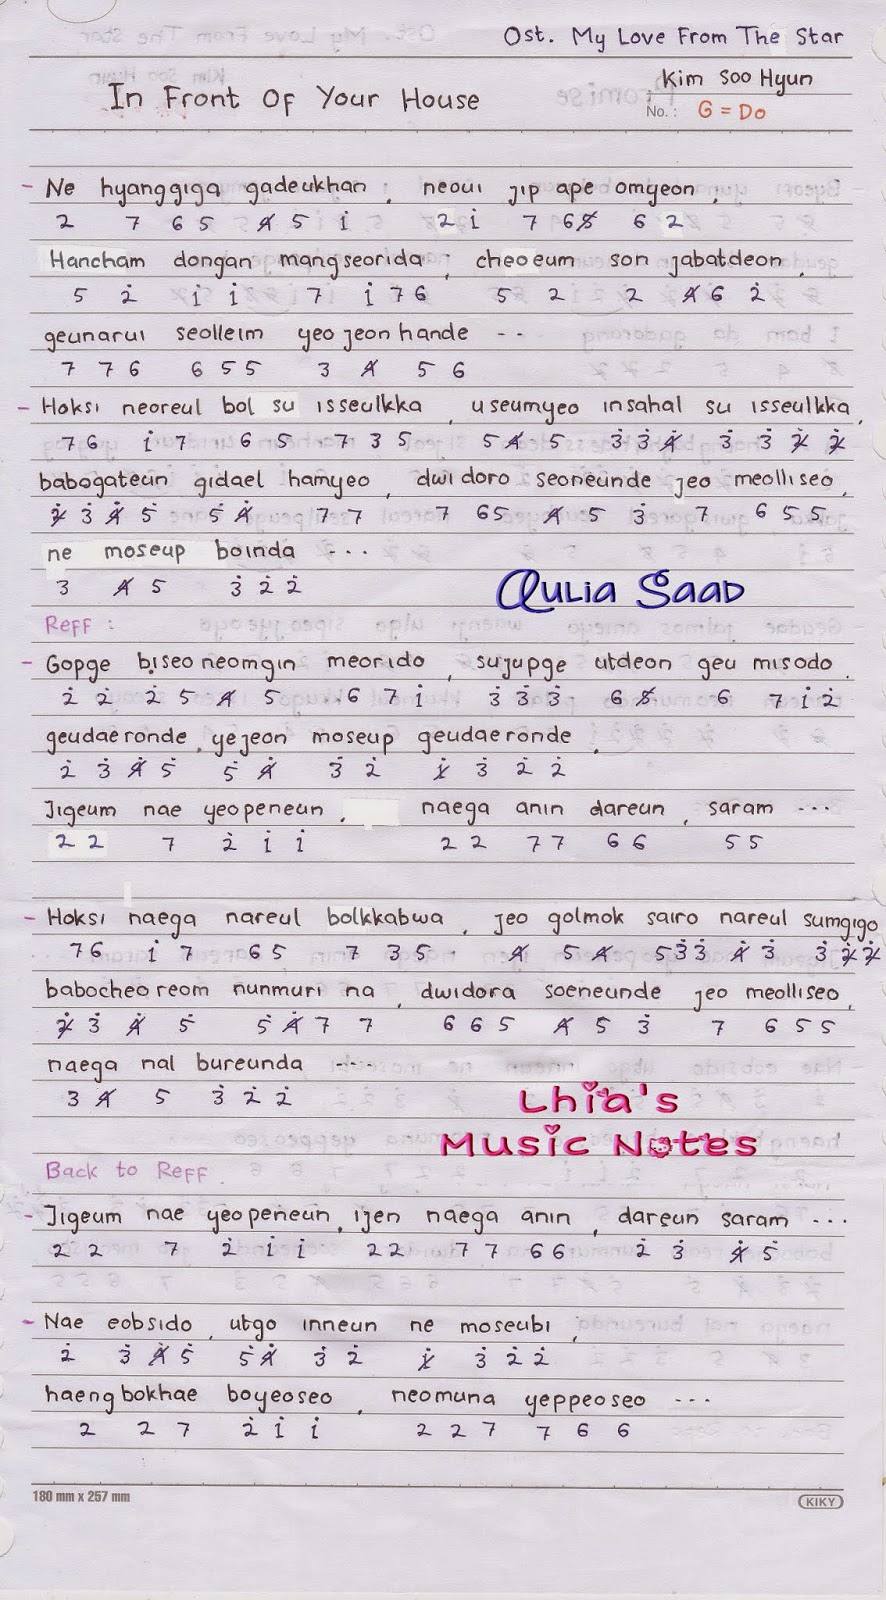 Ost. My Love From The Star
In Front Of Your House
Kim Soo Hyun
No. : G = Do
- Ne hyanggiga gadeukhan , neoui jip ape omyeon ,
2 7 6 5 4̸ 5 1̇ 2̇ 1̇ 7 6 5̸ 6 2
Hancham dongan mangseorida , cheoeum son jabatdeon ,
5 2̇ 1̇ 1̇ 7 1̇ 7 6 5 2 2 4̸ 6 2̇
geunarui seolleim yeojeonhande --
7 7 6 6 5 5 3 4̸ 5 6
- Hoksi neoreul bol su isseulkka , useumyeo insahal su isseulkka ,
7 6 1̇ 7 6 5 7 3 5 5 4̸ 5 3̇ 3̇ 4̸̇ 3̇ 3̇ 2̸̇ 2̸̇
babogateun gidael hamyeo , dwidoro seoneunde jeo meolliseo ,
2̸̇ 3̇ 4̸̇ 5̇ 5̇ 4̸̇ 7 7 7 6 5 4̸ 5 3̇ 7 6 5 5
ne moseup boinda ---
3 4̸ 5 3̇ 2̇ 2̇
Qulia Saad
Reff :
- Gopge biseoneomgin meorido , sujupge utdeon geu misodo .
2̇ 2̇ 2̇ 5 4̸ 5 6 7 1̇ 3̇ 3̇ 3̇ 6 5̸ 6 7 1̇ 2̇
geudaeronde , yejeon moseup geudaeronde ,
2̇ 3̇ 4̸̇ 5̇ 5̇ 4̸̇ 3̇ 2̇ 1̸̇ 3̇ 2̇ 2̇
Jigeum nae yeopeneun , naega anin dareun , saram ---
2 2 7 2̇ 1̇ 1̇ 2 2 7 7 6 6 5 5
- Hoksi naega nareul bolkkabwa , jeo golmok sairo nareul sumgigo
7 6 1̇ 7 6 5 7 3 5 4̸ 5 4̸ 5 3̇ 3̇ 4̸̇ 3̇ 3̇ 2̸̇ 2̸̇
babocheoreom nunmuri na , dwidora soeneunde jeo meolliseo ,
2̸̇ 3̇ 4̸̇ 5̇ 5̇ 4̸̇ 7 7 6 6 5 4̸ 5 3̇ 7 6 5 5
naega nal bureunda ----
3 4̸ 5 3̇ 2̇ 2̇
Lhia's
Music Notes
Back to Reff .
- Jigeum nae yeopeneun , ijen naega anin , dareun saram ---
2 2 7 2̇ 1̇ 1̇ 2 2 7 7 6 6 2̇ 3̇ 4̸̇ 5̇
- Nae eobsido , utgo inneun ne moseubi ,
2̇ 3̇ 4̸̇ 5̇ 5̇ 4̸̇ 3̇ 2̇ 1̸̇ 3̇ 2̇ 2̇
haengbokhae boyeoseo , neomuna yeppeoseo ---
2 2 7 2̇ 1̇ 1̇ 2 2 7 7 6 6
180 mm x 257 mm
KIKY